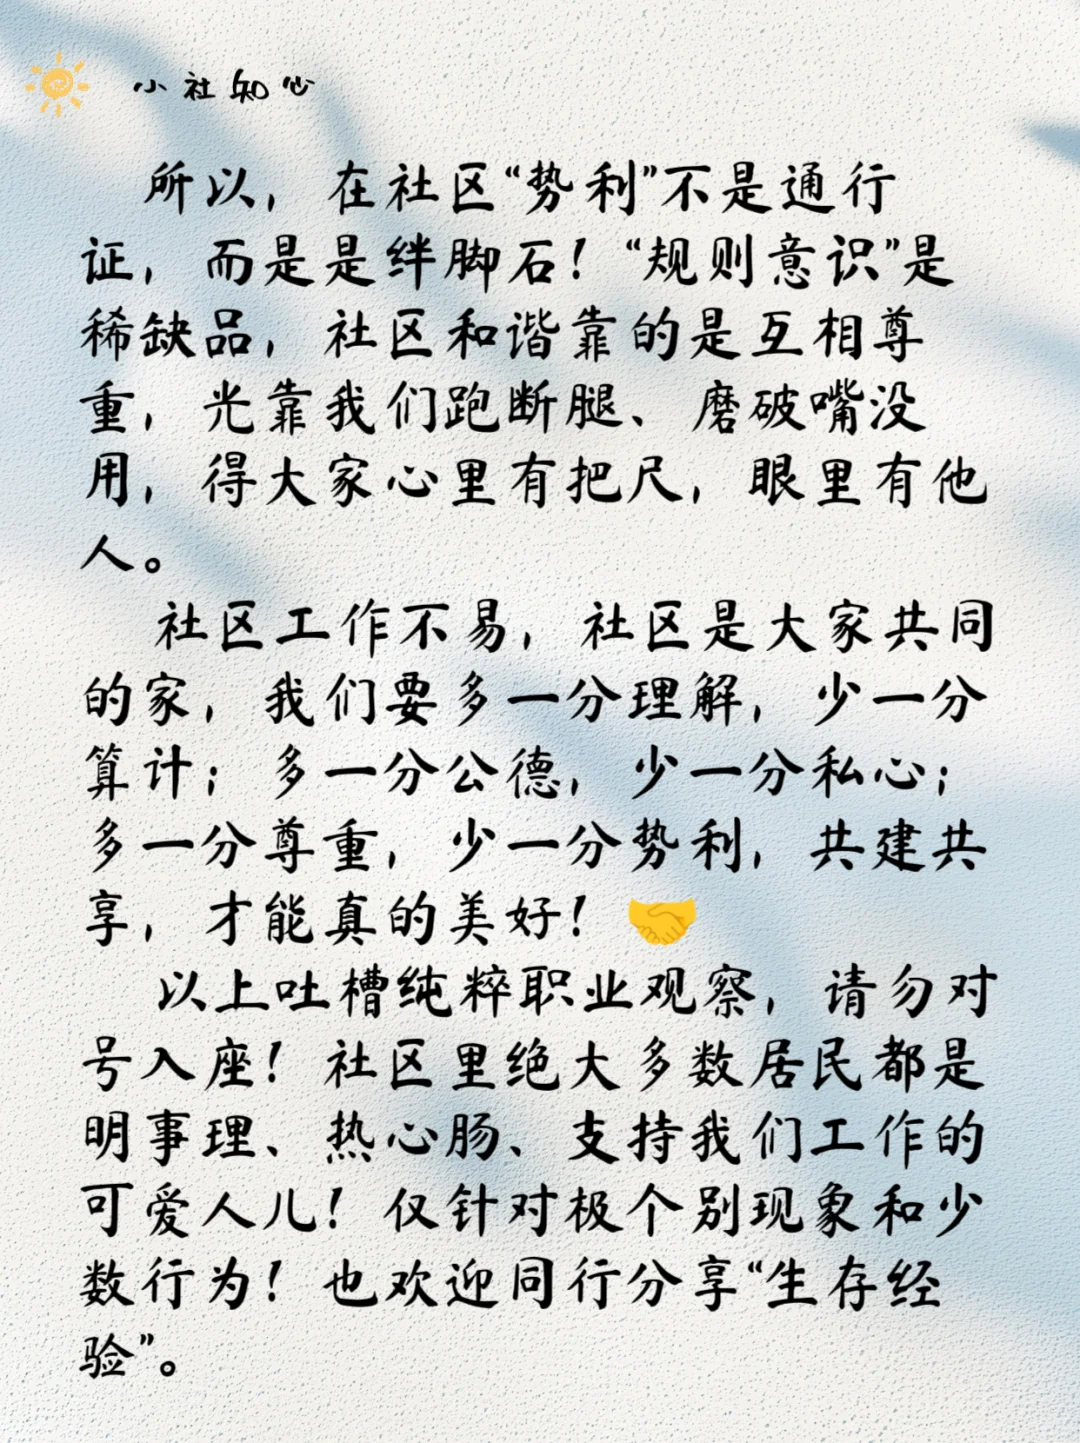 小社知心
所以，在社区“势利”不是通行
证，而是是绊脚石！“规则意识”是
稀缺品，社区和谐靠的是互相尊
重，光靠我们跑断腿、磨破嘴没
用，得大家心里有把尺，眼里有他
人。
社区工作不易，社区是大家共同
的家，我们要多一分理解，少一分
算计；多一分公德，少一分私心；
多一分尊重，少一分势利，共建共
享，才能真的美好！🤝
以上吐槽纯粹职业观察，请勿对
号入座！社区里绝大多数居民都是
明事理、热心肠、支持我们工作的
可爱人儿！仅针对极个别现象和少
数行为！也欢迎同行分享“生存经
验”。